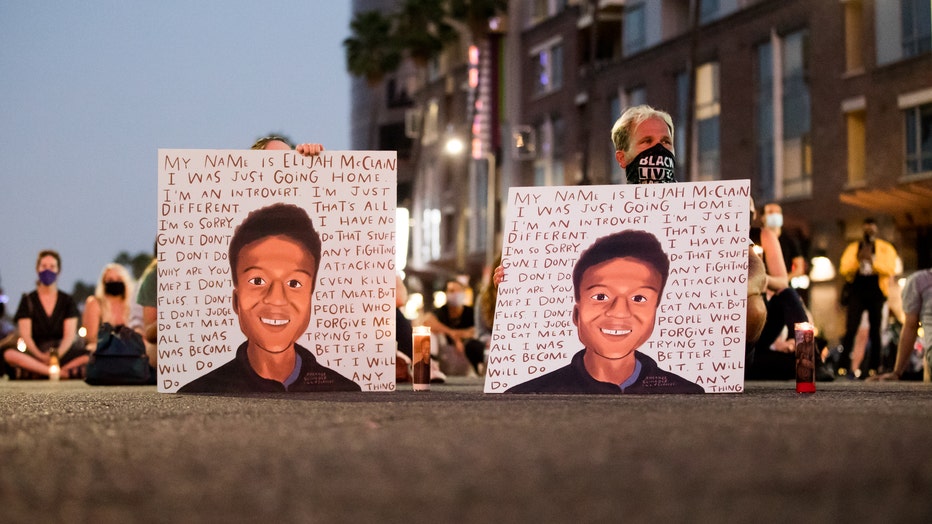 MY NAME IS ELIJAH MCCLAIN
I WAS JUST GOING HOME.
I'M AN INTROVERT. I'M JUST
DIFFERENT. THAT'S ALL
I'M SO SORRY I HAVE NO
GUN I DON'T DO THAT STUFF
I DON'T DO ANY FIGHTING
WHY ARE YOU ATTACKING
ME? I DON'T EVEN KILL
FLIES I DON'T EAT MEAT. BUT
I DON'T JUDGE PEOPLE WHO
DO EAT MEAT FORGIVE ME.
ALL I WAS TRYING TO DO
WAS BECOME BETTER I
WILL DO IT. I WILL
DO ANY THING
BLACK
LIVES
MY NAME IS ELIJAH MCCLAIN
I WAS JUST GOING HOME.
I'M AN INTROVERT I'M JUST
DIFFERENT THAT'S ALL
I'M SO SORRY I HAVE NO
GUN I DON'T DO THAT STUFF
I DON'T DO ANY FIGHTING
WHY ARE YOU ATTACKING
ME? I DON'T EVEN KILL
FLIES I DON'T EAT MEAT. BUT
I DON'T JUDGE PEOPLE WHO
DO EAT MEAT FORGIVE ME.
ALL I WAS TRYING TO DO
WAS BECOME BETTER. I
WILL DO IT. I WILL
DO ANY THING